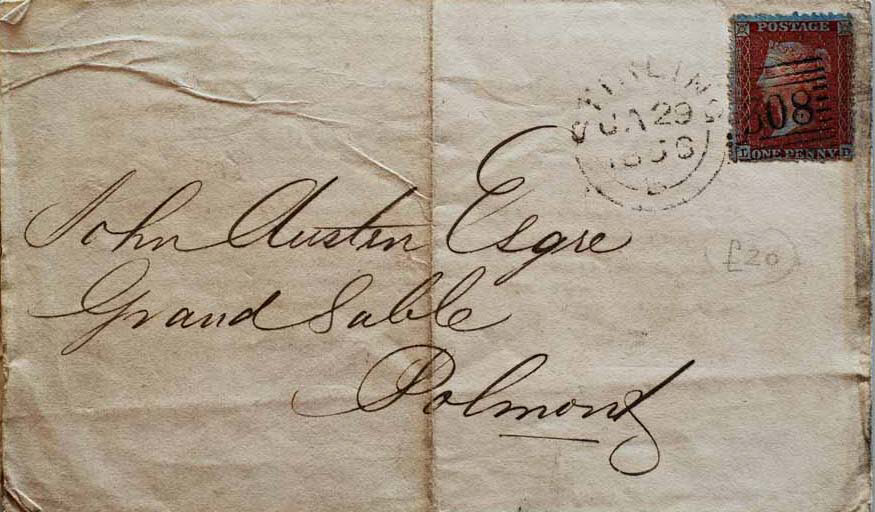 POSTAGE
STIRLING
JA 29
1856
B
308
L ONE PENNY D
John Austin Esqre
Grand Sable
Polmont
£20